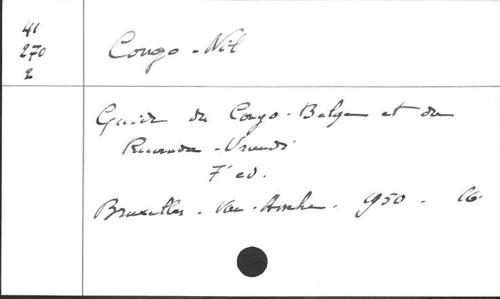 41
270
2
Congo-Nil
Guide du Congo-Belge et du
Ruanda-Urundi
7e ed.
Bruxelles. Van Assche. 1950. 16.